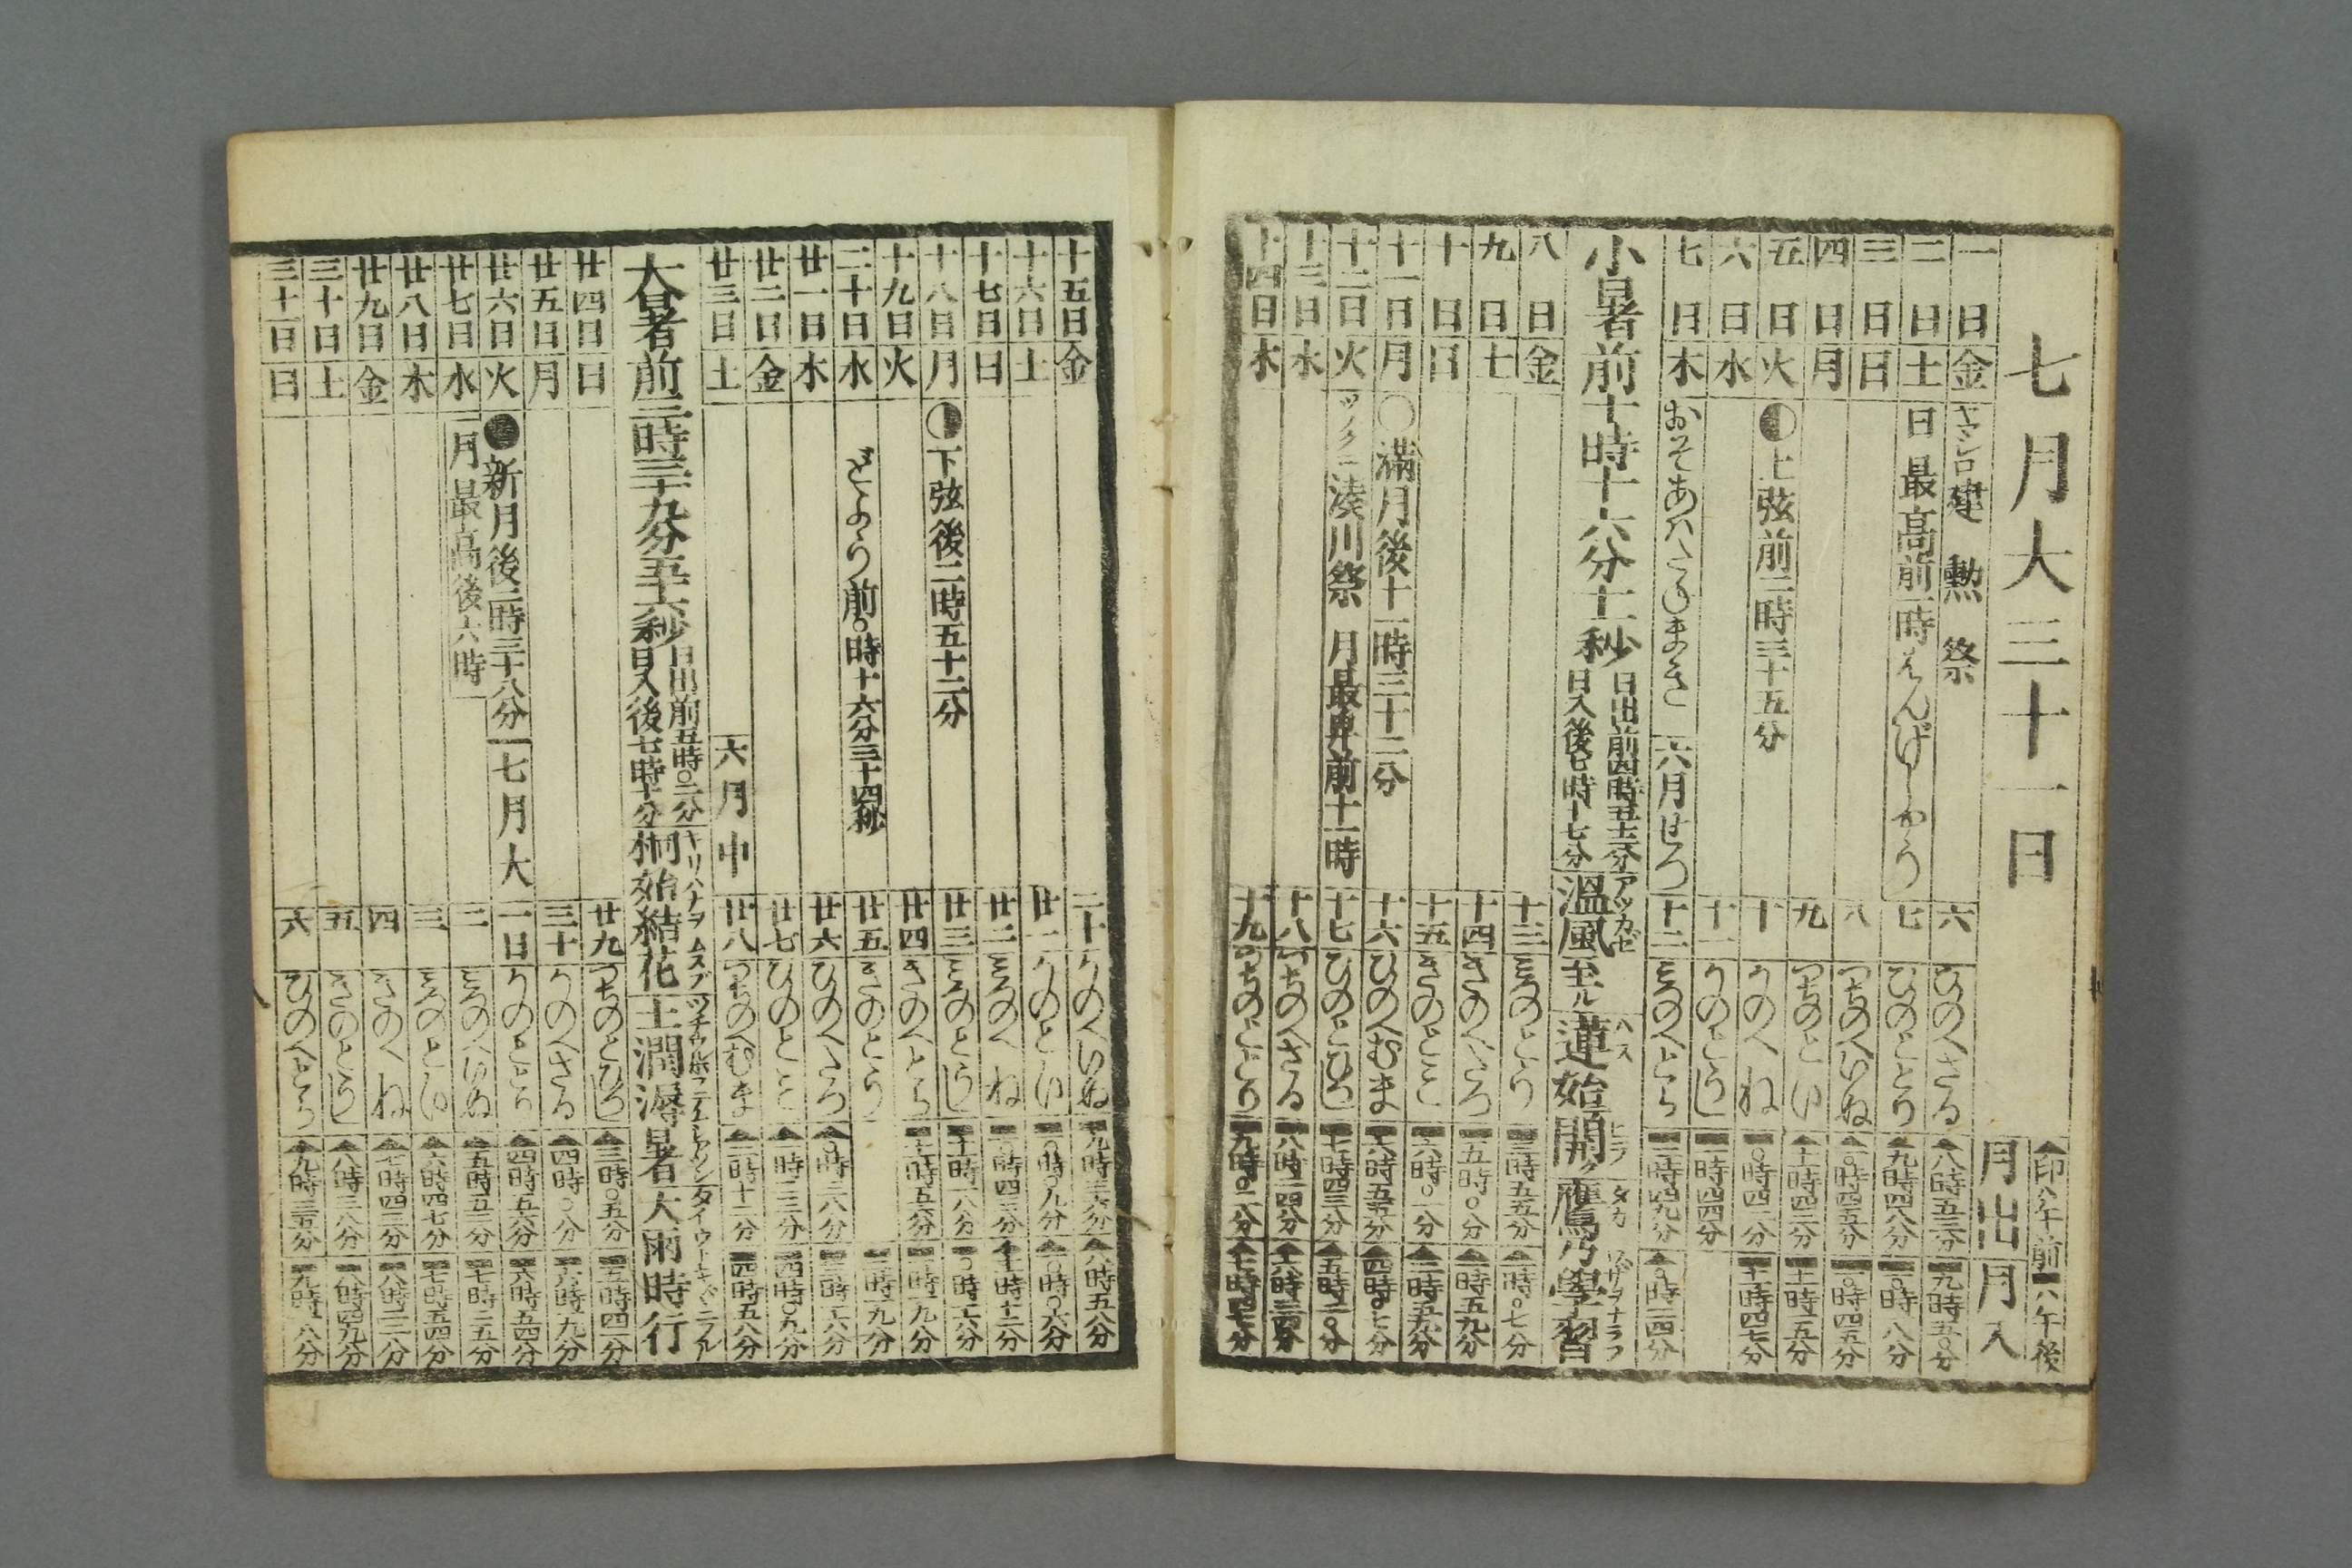 七月大三十一日
▲印ハ午前 ▬ハ午後
月出 月入
一日 金 ヤマシロ 建勲祭 六 ひのへさる ▲八時五三分 ▬九時五〇分
二日 土 日最高前一時 はんげしやう 七 ひのととり ▲九時四八分 ▬一〇時一八分
三日 日 八 つちのへいぬ ▲一〇時四五分 ▬一〇時四五分
四日 月 九 つちのとい ▲十一時四二分 ▬十一時一五分
五日 火 上弦前二時三十五分 十 かのへね ▬〇時四二分 ▬十一時四七分
六日 水 十一 かのとうし ▬一時四四分
七日 木 おそあハたねまき 六月せつ 十二 みつのへとら ▬二時四九分 ▲〇時二四分
小暑 前十時十六分十一秒 日出前四時五十二分 日入後七時十七分 温風至ル アツカゼ 蓮始開ク ハス ヒラ 鷹乃學習 タカ ワザヲナラフ
八日 金 十三 みつのとう ▬三時五五分 ▲一時〇七分
九日 土 十四 きのへたつ ▬五時〇分 ▲一時五九分
十日 日 十五 きのとみ ▬六時〇一分 ▲二時五五分
十一日 月 ○満月後十一時三十二分 十六 ひのへむま ▬六時五五分 ▲四時〇七分
十二日 火 ツノクニ 湊川祭 月最卑前十一時 十七 ひのとひつし ▬七時四三分 ▲五時二〇分
十三日 水 十八 つちのへさる ▬八時二四分 ▲六時三四分
十四日 木 十九 つちのととり ▬九時〇一分 ▲七時四七分
十五日 金 二十 かのへいぬ ▬九時三六分 ▲八時五八分
十六日 土 廿一 かのとい ▬一〇時〇九分 ▲一〇時〇六分
十七日 日 廿二 みつのへね ▬一〇時四三分 ▲十一時十二分
十八日 月 下弦後二時五十二分 廿三 みつのとうし ▬十一時一八分 ▬〇時一六分
十九日 火 廿四 きのへとら ▬十一時五六分 ▬一時一九分
二十日 水 どよう前〇時十六分三十四秒 廿五 きのとう ▬二時一九分
廿一日 木 廿六 ひのへたつ ▲〇時三八分 ▬三時一六分
廿二日 金 廿七 ひのとみ ▲一時二三分 ▬四時〇九分
廿三日 土 六月中 廿八 つちのへむま ▲二時十二分 ▬四時五八分
大暑 前三時三十九分五十六秒 日出前五時〇二分 日入後七時十分 桐始結花 キリハナヲムスブ 土潤溽暑 大雨時行
廿四日 日 廿九 つちのとひつし ▲三時〇五分 ▬五時四一分
廿五日 月 三十 かのへさる ▲四時〇分 ▬六時一九分
廿六日 火 ●新月後二時三十八分 七月大 一日 かのととり ▲四時五六分 ▬六時五四分
廿七日 水 月最高後六時 二 みつのへいぬ ▲五時五二分 ▬七時二五分
廿八日 木 三 みつのとい ▲六時四七分 ▬七時五四分
廿九日 金 四 きのへね ▲七時四二分 ▬八時二二分
三十日 土 五 きのとうし ▲八時三八分 ▬八時四九分
三十一日 日 六 ひのへとら ▲九時三五分 ▬九時一八分